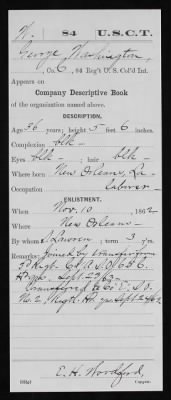 W. 84 U.S.C.T.
George Washington,
, Co. G, 84 Reg't U. S. Col'd Inf.
Appears on
Company Descriptive Book
of the organization named above.
DESCRIPTION.
Age 36 years; height 5 feet 6 inches.
Complexion blk
Eyes blk ; hair blk
Where born New Orleans, La
Occupation laborer
ENLISTMENT.
When Nov. 10 , 1862
Where New Orleans
By whom ; term 3 y'rs.
Remarks: Joined by transfer from
Regt. S.O. 656.
Sept. 22/62
Transferred to Co. E. S.O.
No. 2, Regtl. Sept 24/62
E. H. Woodford
Copyist.